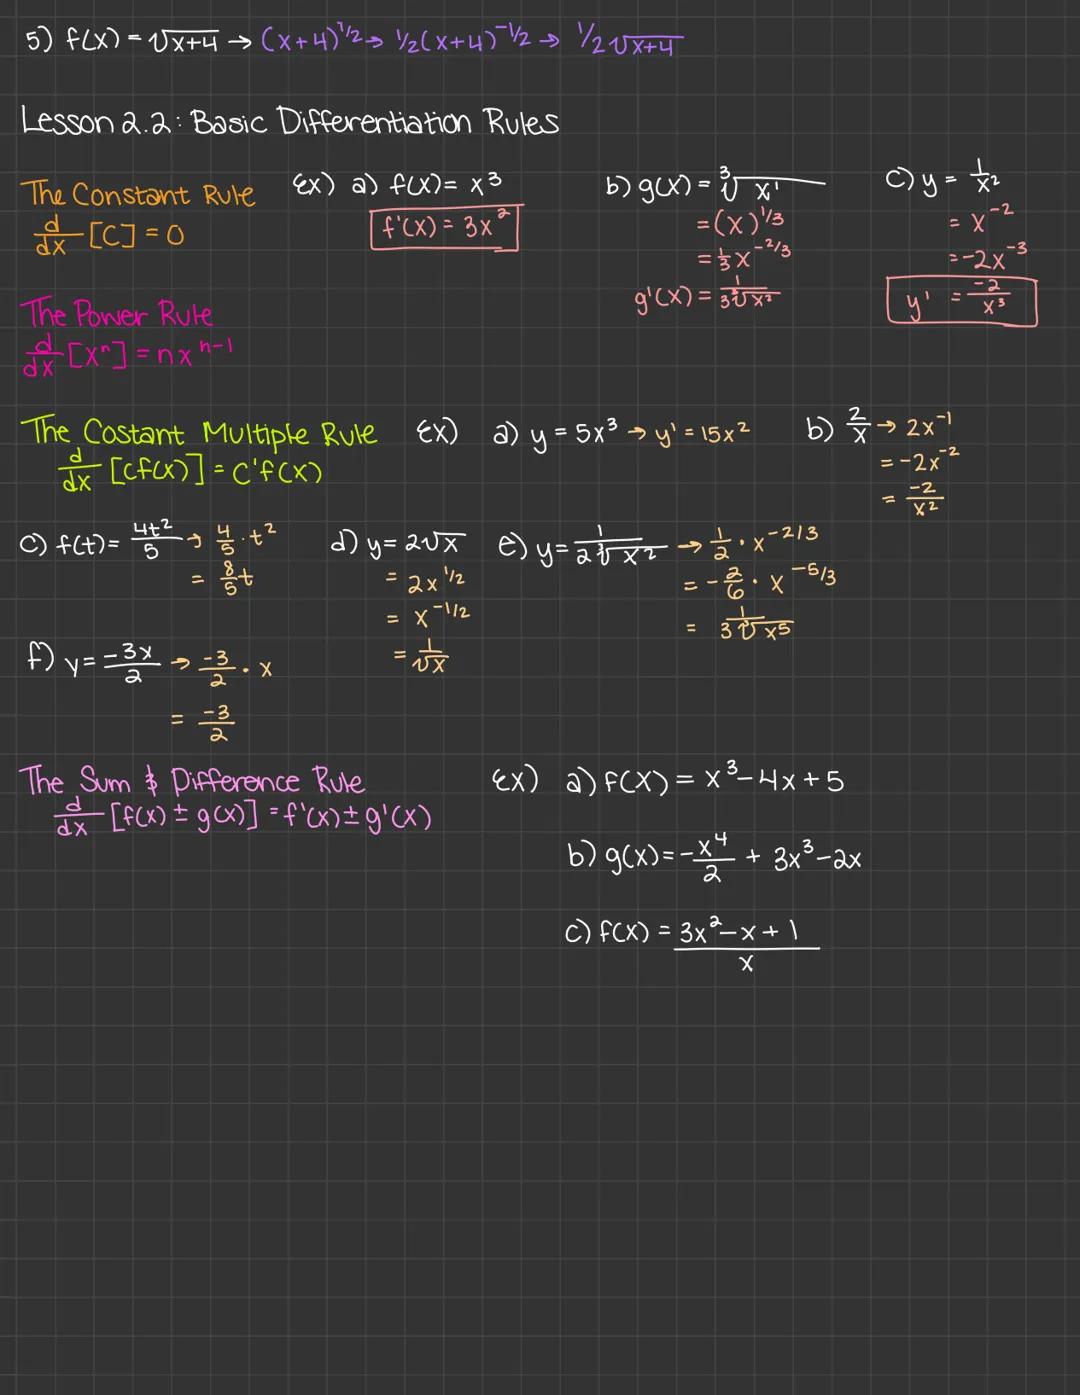 5) f(x) = √x+4 → (x+4)^1/2 → 1/2(x+4)^-1/2 → 1/2√x+4
Lesson 2.2: Basic Differentiation Rules
The Constant Rule
d/dx [C] = 0
Ex) a) f(x) = x³
f'(x) = 3x²
b) g(x) = ³√x¹
= (x)^1/3
= 1/3 x^-2/3
g'(x) = 1/3³√x²
c) y = 1/x²
= x^-2
= -2x^-3
y' = -2/x³
The Power Rule
d/dx [x^n] = nx^n-1
The Costant Multiple Rule
d/dx [cf(x)] = c'f(x)
Ex) a) y = 5x³ → y' = 15x²
b) 2/x → 2x^-1
= -2x^-2
= -2/x²
c) f(t) = 4t²/5 → 4/5 · t²
= 8/5 t
d) y = 2√x
= 2x^1/2
= x^-1/2
= 1/√x
e) y = 1/2³√x² → 1/2 · x^-2/3
= -2/6 · x^-5/3
= 1/3³√x5
f) y = -3x/2 → -3/2 · x
= -3/2
The Sum & Difference Rule
d/dx [f(x) ± g(x)] = f'(x) ± g'(x)
Ex) a) f(x) = x³-4x+5
b) g(x) = -x⁴/2 + 3x³-2x
c) f(x) = 3x²-x+1/x